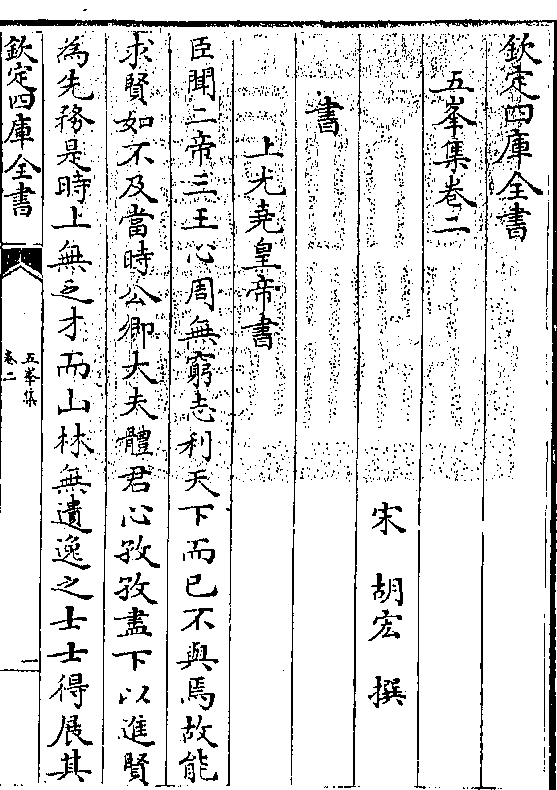 欽定四庫全書
五峯集卷二
宋 胡宏 撰
書
上光堯皇帝書
臣聞二帝三王心周無窮志利天下而已不與焉故能
求賢如不及當時公卿大夫體君心孜孜盡下以進賢
為先務是時上無乏才而山林無遺逸之士士得展其
欽定四庫全書
五峯集
卷二
一